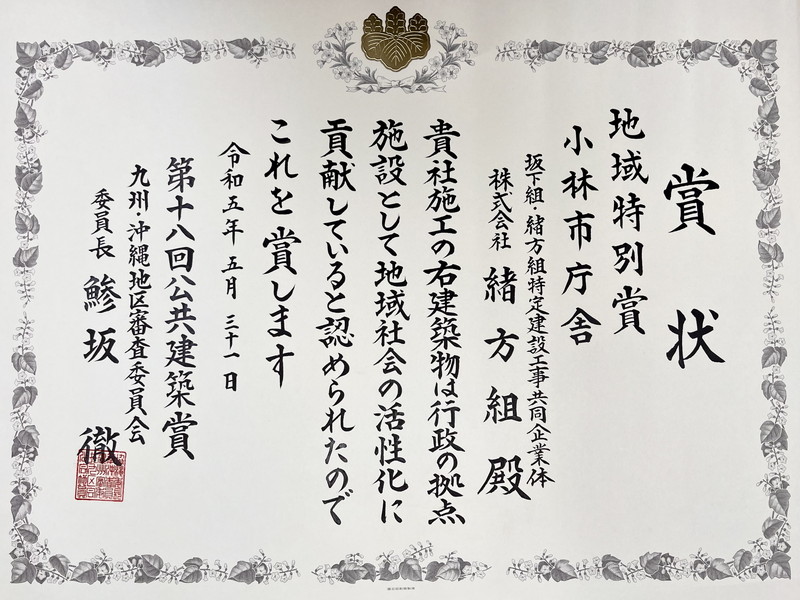 賞状
地域特別賞
小林市庁舎
坂下組・緒方組特定建設工事共同企業体
株式会社 緒方組 殿
貴社施工の右建築物は行政の拠点
施設として地域社会の活性化に
貢献していると認められたので
これを賞します
令和五年五月三十一日
第十八回公共建築賞
九州・沖縄地区審査委員会
委員長 鰺坂 徹